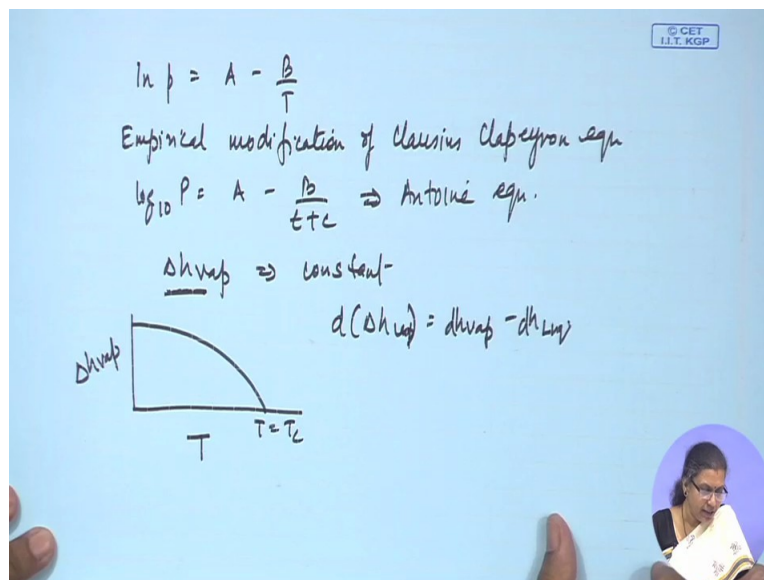 © CET
I.I.T. KGP
ln p = A - B/T
Empirical modification of Clausius Clapeyron equn
log₁₀ P = A - B/(t+c) ⇒ Antoine equn.
Δhvap ⇒ constant
d(Δhvap) = dhvap - dhLiq
Δhvap
T = Tc
T